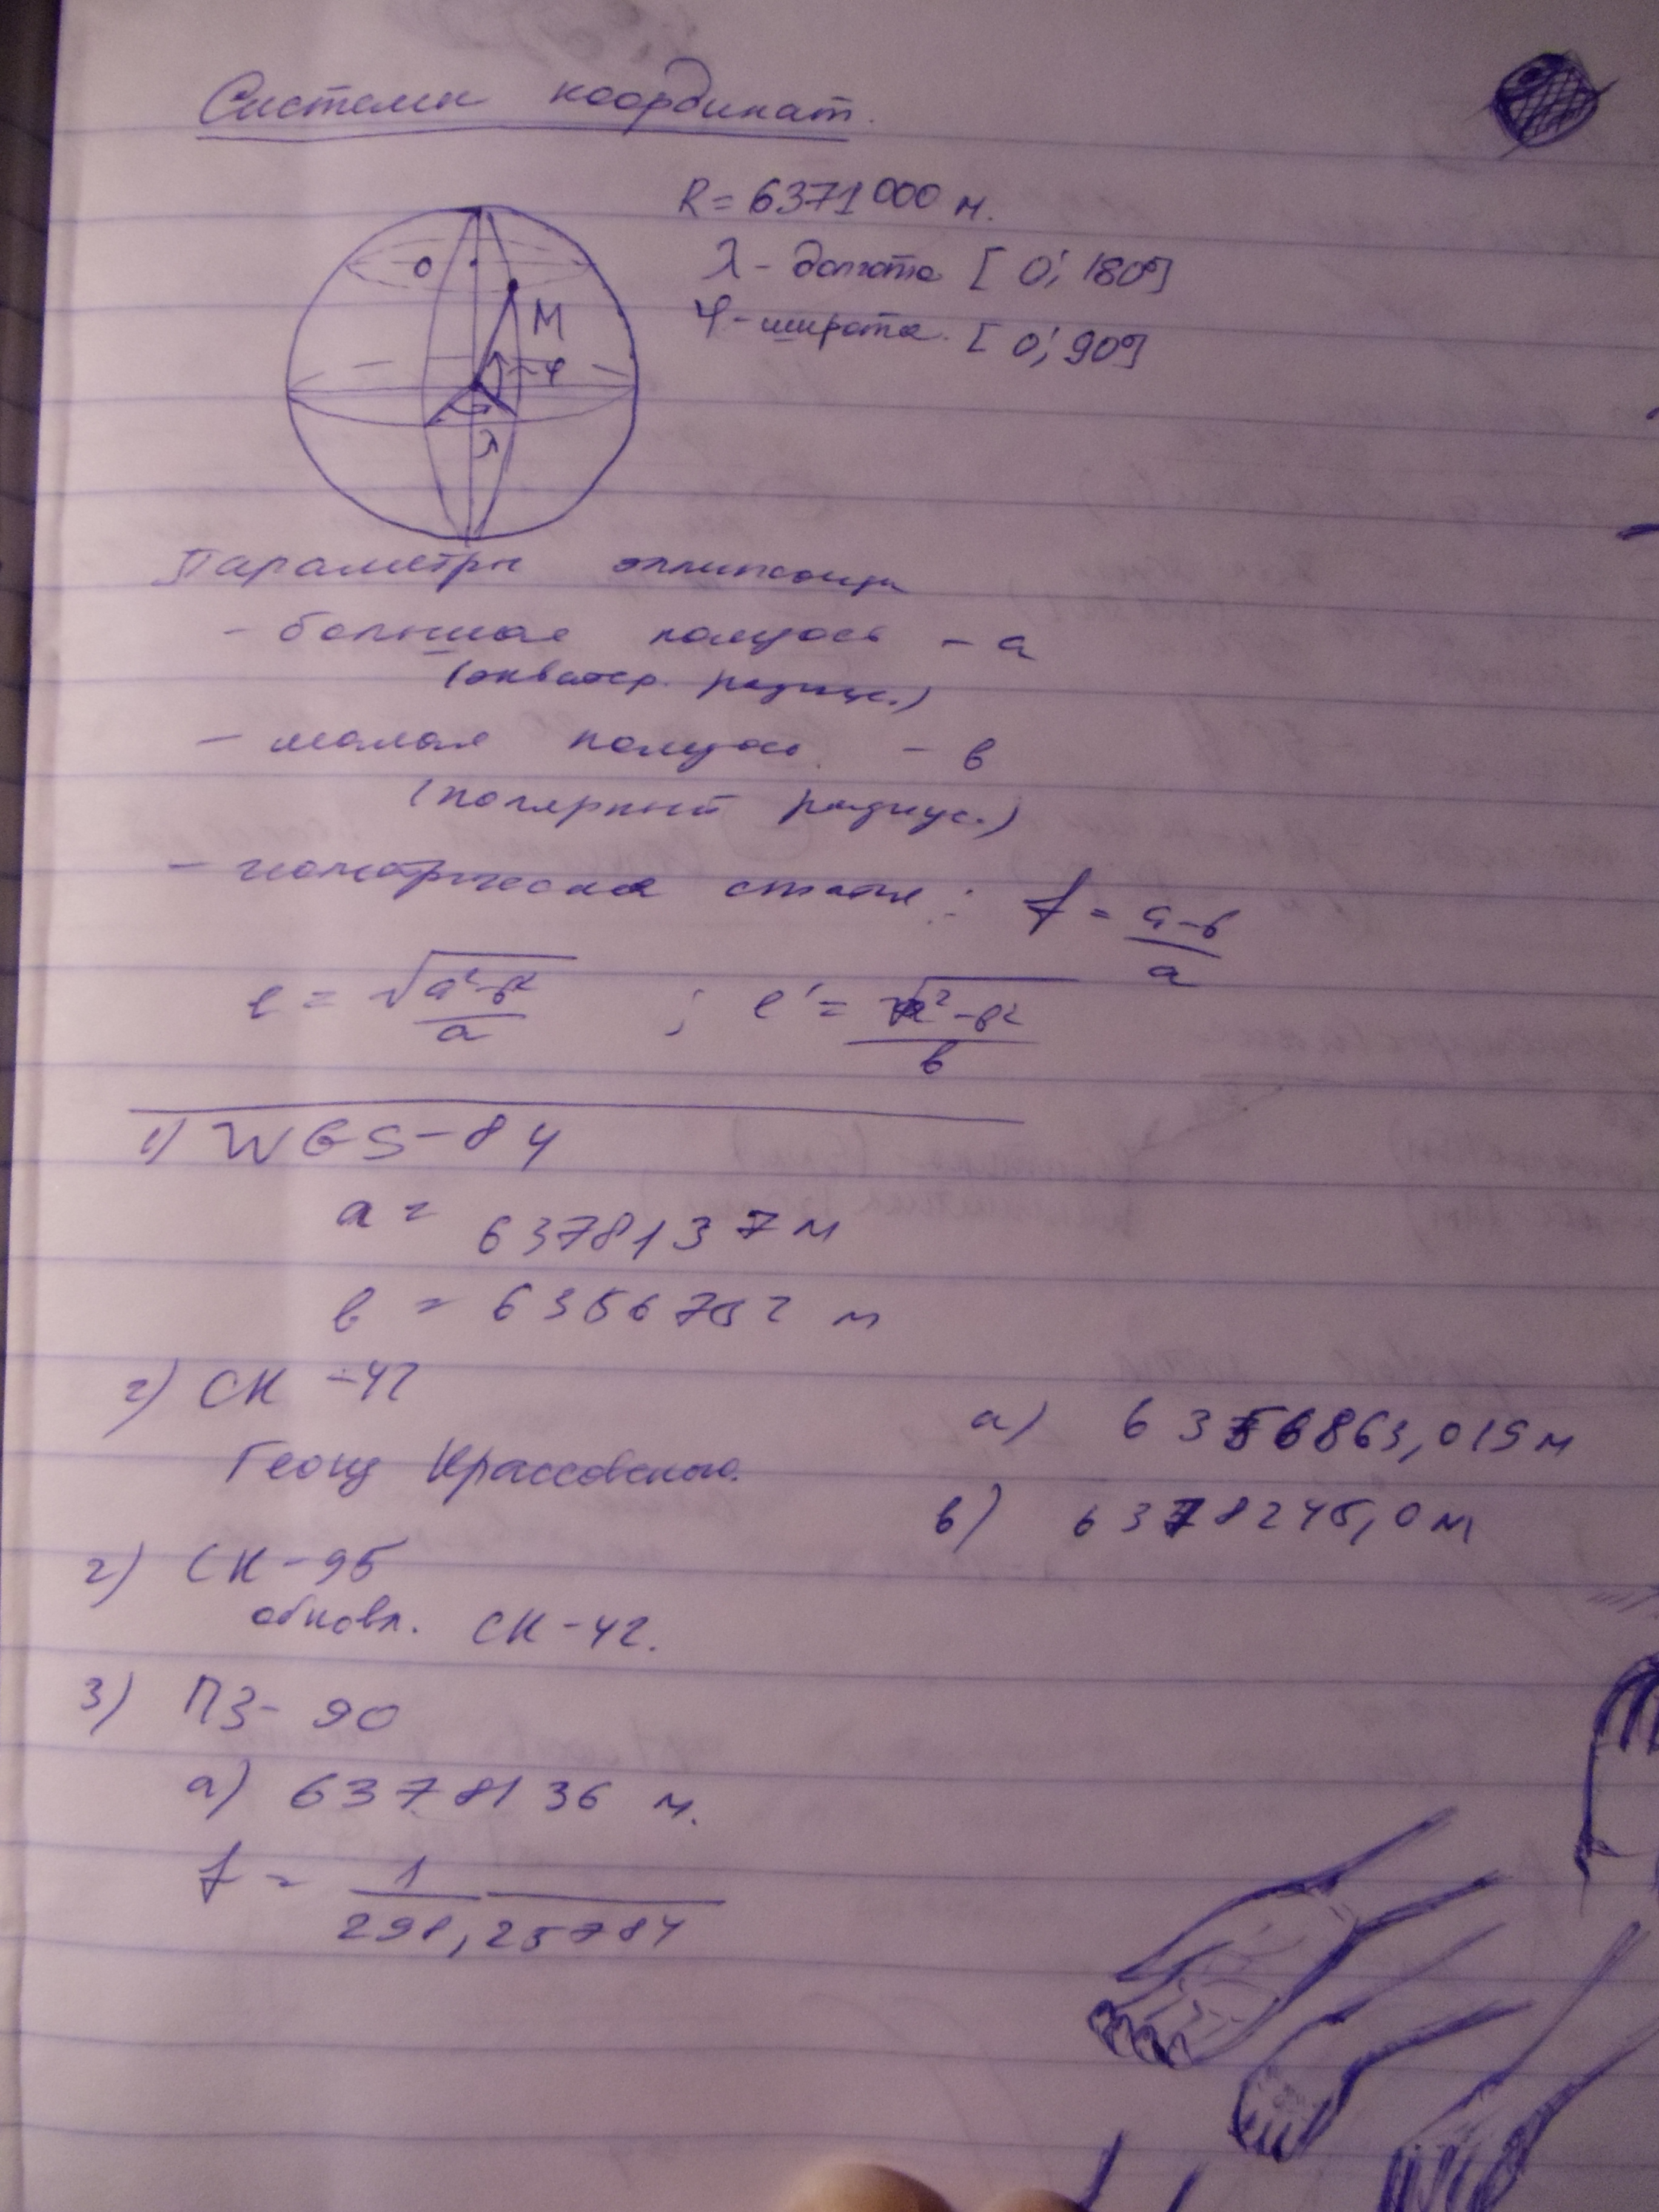 Системы координат.
R = 6371000 м.
λ - долгота [0; 180°]
φ - широта. [0; 90°]
O
M
φ
λ
Параметры эллипсоида
- большая полуось - a
(экватор. радиус.)
- малая полуось - в
(полярный радиус.)
- геометрическая сжатия : f = (a-в)/a
e = √(a²-в²)/a ; e' = √(a²-в²)/в
1) WGS-84
a = 6378137 м
в = 6356752 м
2) СК-42
a) 6356863,019 м
Геоид Крассовского.
в) 6378245,0 м
2) СК-95
обновл. СК-42.
3) ПЗ-90
a) 6378136 м.
f = 1/298,25784